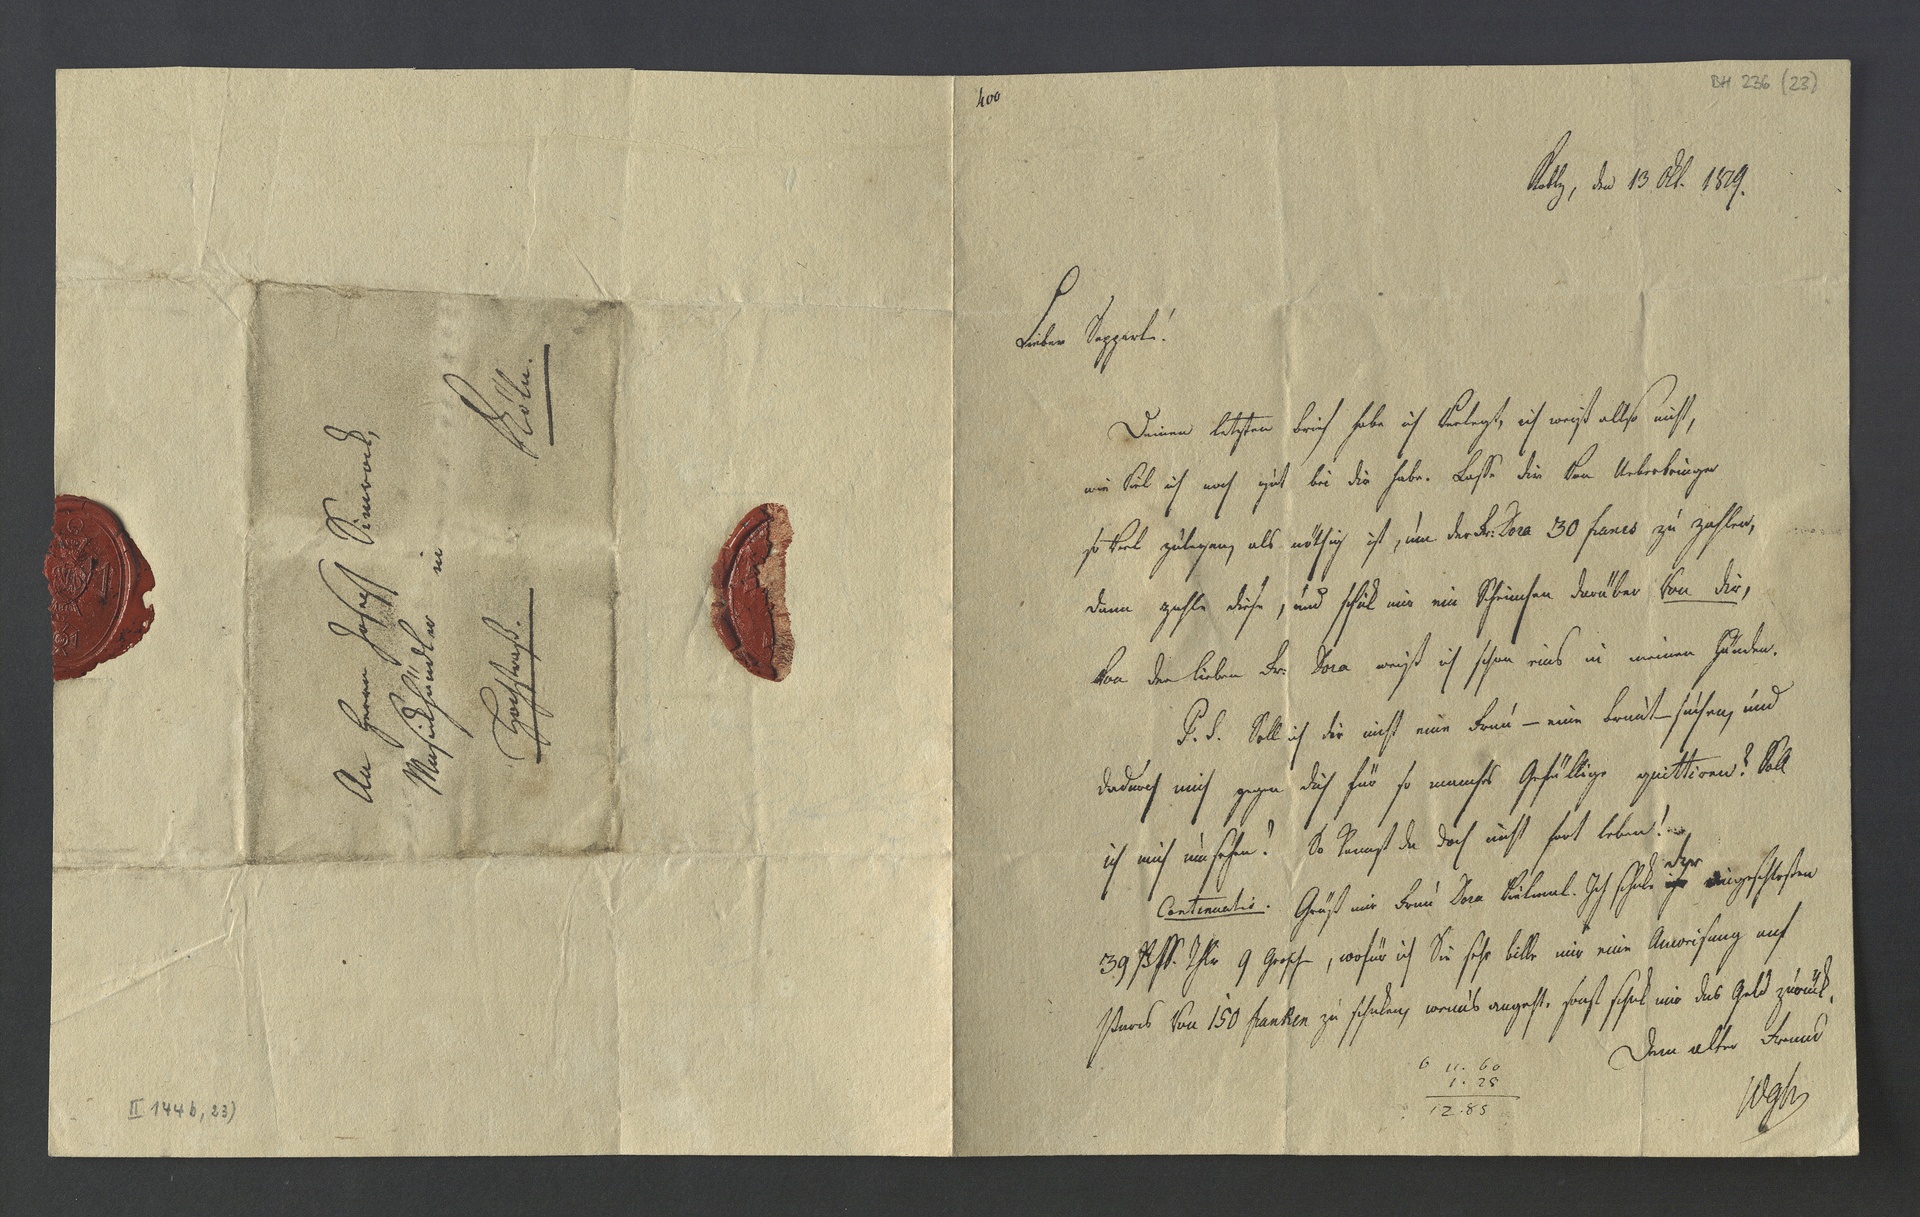 An Herrn Joseph Simrock,
Musikhändler in
Hochstraß. Köln.
II 144b, 23)
400
BH 236 (23)
Koblz, den 13 Okt. 1829.
Lieber Sepperl!
Deinen letzten Brief habe ich verlegt, ich weiß also nicht,
wie viel ich noch gut bei dir habe. Lasse dir von Ueberbringer
so viel zulegen, als nöthig ist, um der Fr: Dora 30 francs zu zahlen,
dann zahle diese, und schick mir ein Scheinchen darüber von dir,
von der lieben Fr: Dora weiß ich schon eins in meinen Händen.
P. S. Soll ich dir nicht eine Frau – eine Braut suchen, und
dadurch mich gegen dich für so manches Gefällige quittiren? Soll
ich mich umsehen? So kannst du doch nicht fort leben!
Continuatio. Grüß mir Frau Dora vielmal. Ich schicke dir eingeschloßen
39 Thlr 9 Grosch, wofür ich Sie sehr bitte mir eine Anweisung auf
Paris von 150 franken zu schicken, wenns angeht. sonst schick mir das Geld zurück.
Dein alter Freund
Wglr
6 11. 60
1. 25
12.85